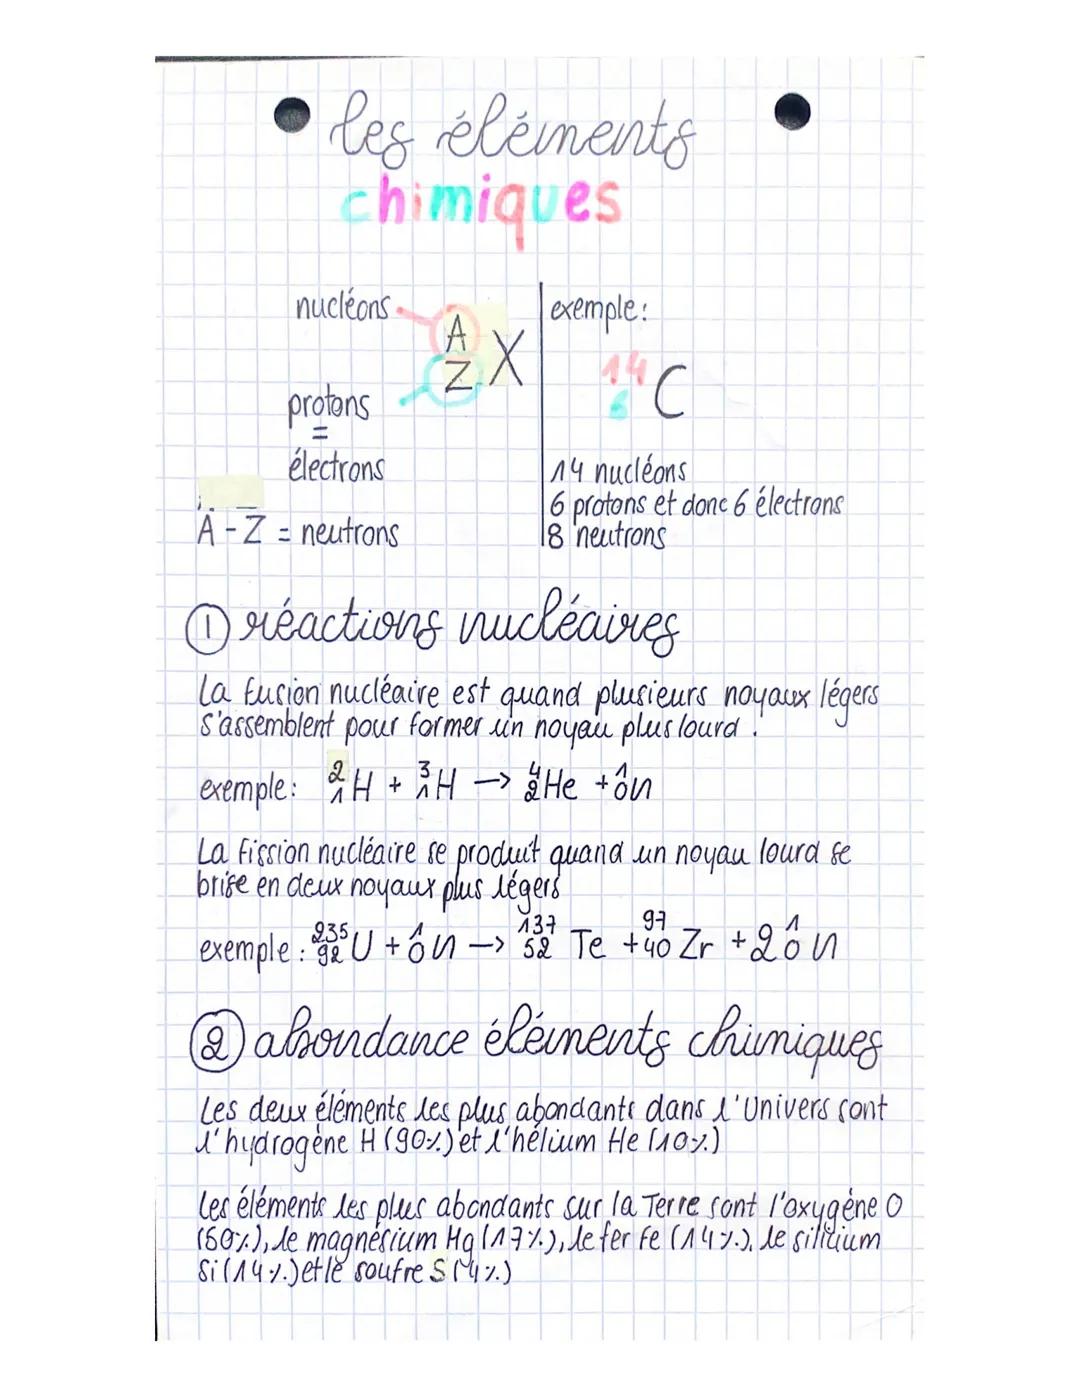 les éléments
chimiques
nucléons
A
Z X
protons
=
électrons
A - Z = neutrons
exemple:
14
6 C
14 nucléons
6 protons et donc 6 électrons
8 neutrons
① réactions nucléaires
La fusion nucléaire est quand plusieurs noyaux légers
s'assemblent pour former un noyau plus lourd.
exemple: ²₁H + ³₁H → ⁴₂He + ¹₀n
La fission nucléaire se produit quand un noyau lourd se
brise en deux noyaux plus légers
exemple: ²³⁵₉₂U + ¹₀n → ¹³⁷₅₂Te + ⁹⁷₄₀Zr + 2 ¹₀n
② abondance éléments chimiques
Les deux éléments les plus abondants dans l'Univers sont
l'hydrogène H (90%) et l'hélium He (10%)
Les éléments les plus abondants sur la Terre sont l'oxygène O
(50%), le magnésium Mg (17%), le fer Fe (14%), le silicium
Si (14%) et le soufre S (4%)